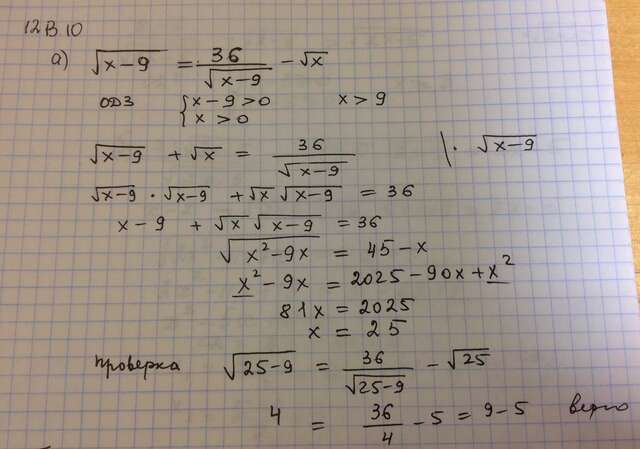 12В10
а) √(x-9) = 36/√(x-9) - √x
ОДЗ { x-9>0 x>9
x>0
√(x-9) + √x = 36/√(x-9) |· √(x-9)
√(x-9) · √(x-9) + √x √(x-9) = 36
x-9 + √x √(x-9) = 36
√(x²-9x) = 45-x
x²-9x = 2025-90x+x²
81x = 2025
x = 25
Проверка √(25-9) = 36/√(25-9) - √25
4 = 36/4 - 5 = 9-5 верно